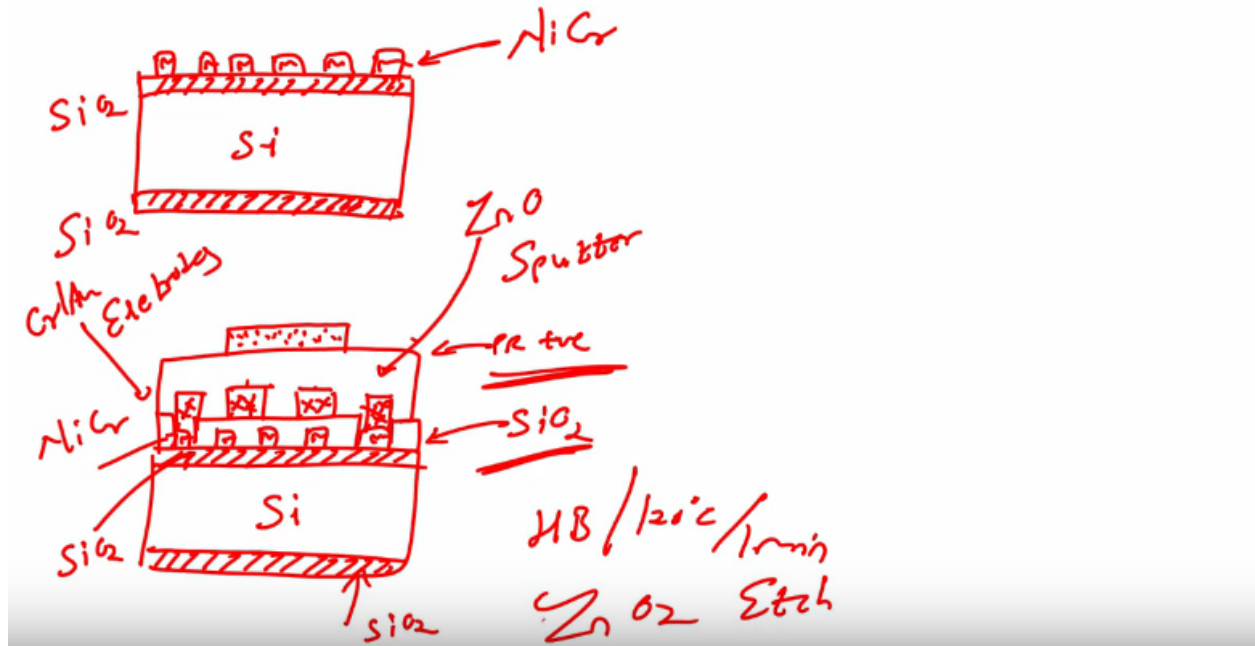 NiCr
SiO2
Si
SiO2
ZnO
Sputter
Cr/Au
Eletrodes
PR +ve
NiCr
SiO2
Si
SiO2
SiO2
HB/120°C/1min
ZnO2 Etch